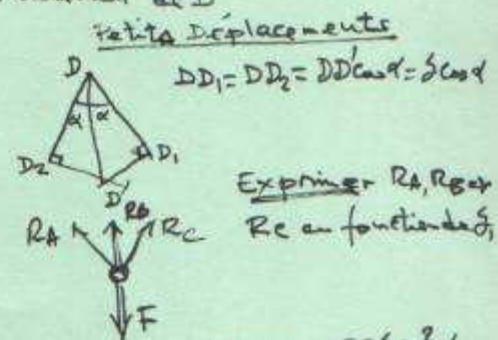 et D
Petits Déplacements
D
DD₁ = DD₂ = DD'cos α = δ cos α
α α
D₂ D₁
D'
Exprimer RA, RB et
RA RB RC
RC en fonction de δ,
F